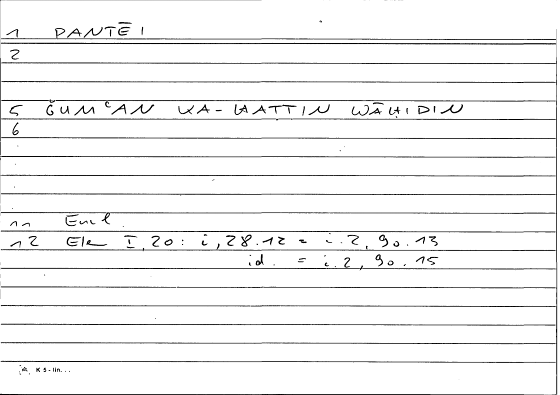 1 PANTĒI
2
5 ĞUMʿAN KA-ḪAṬṬIN WĀḤIDIN
6
11 Eucl.
12 Ele I, 20: i, 28.12 = i.2, 90.13
id. = i.2, 90.15
K 5 - lin...